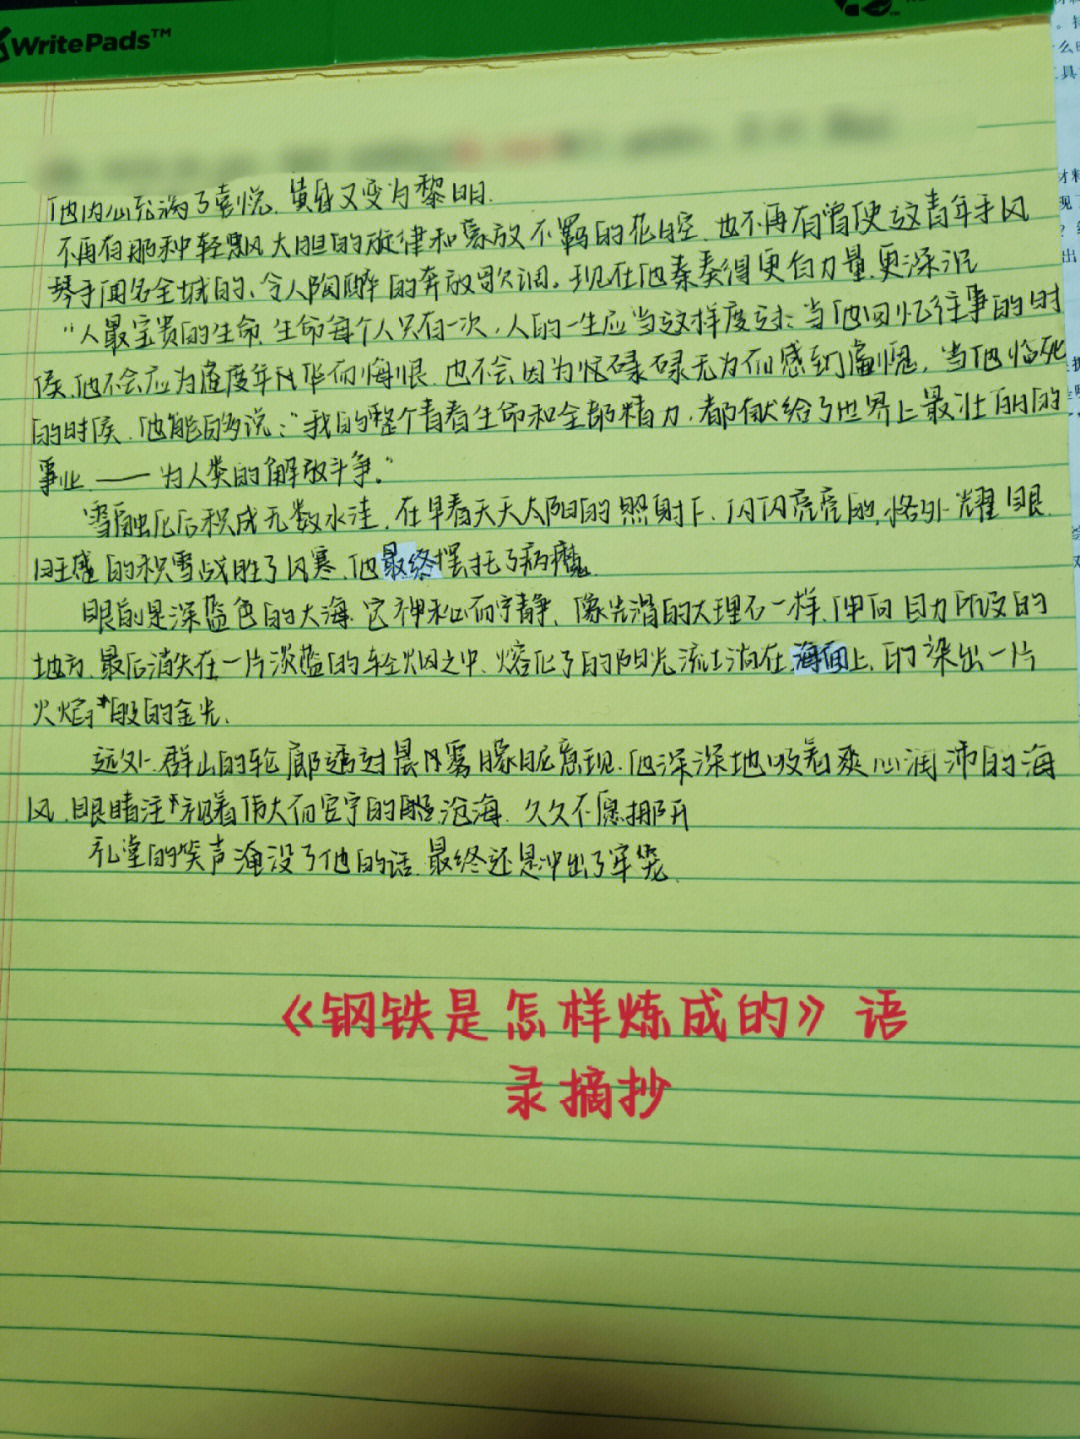 WritePads™
他内心充满了喜悦.黄昏又变为黎明.
不再有那种轻飘大胆的旋律和豪放不羁的花腔.也不再有曾使这青年手风
琴手闻名全城的、令人陶醉的奔放歌调。现在他奏得更有力量.更深沉
"人最宝贵的生命.生命每个人只有一次,人的一生应当这样度过:当他回忆往事的时
候.他不会应为虚度年华而悔恨.也不会因为忙碌碌无为而感到羞愧,当他临死
的时候.他能够说:"我的整个青春生命和全部精力,都献给了世界上最壮丽的
事业——为人类的解放斗争。"
雪融化后积成无数水洼,在早春天天太阳的照射下、闪闪亮亮的,格外耀眼.
旺盛的积雪战胜了风寒.他最终摆托了病魔.
眼前是深蓝色的大海.它神秘而宁静、像光滑的大理石一样.伸向目力所及的
地方.最后消失在一片淡蓝的轻烟之中.熔化了的阳光流淌在海面上,染出一片
火焰般的金光.
远处.群山的轮廓透过晨雾朦胧隐现.他深深地吸着爽心润沛的海
风.眼睛注视着伟大而宁的沧海.久久不愿挪开
礼堂的笑声淹没了他的话.最终还是冲出了牢笼.
《钢铁是怎样炼成的》语
录摘抄